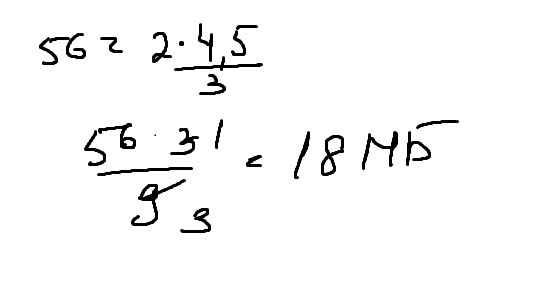 56 = 2 · 4,5
3
56 · 3 1
9 3
= 18 Мб